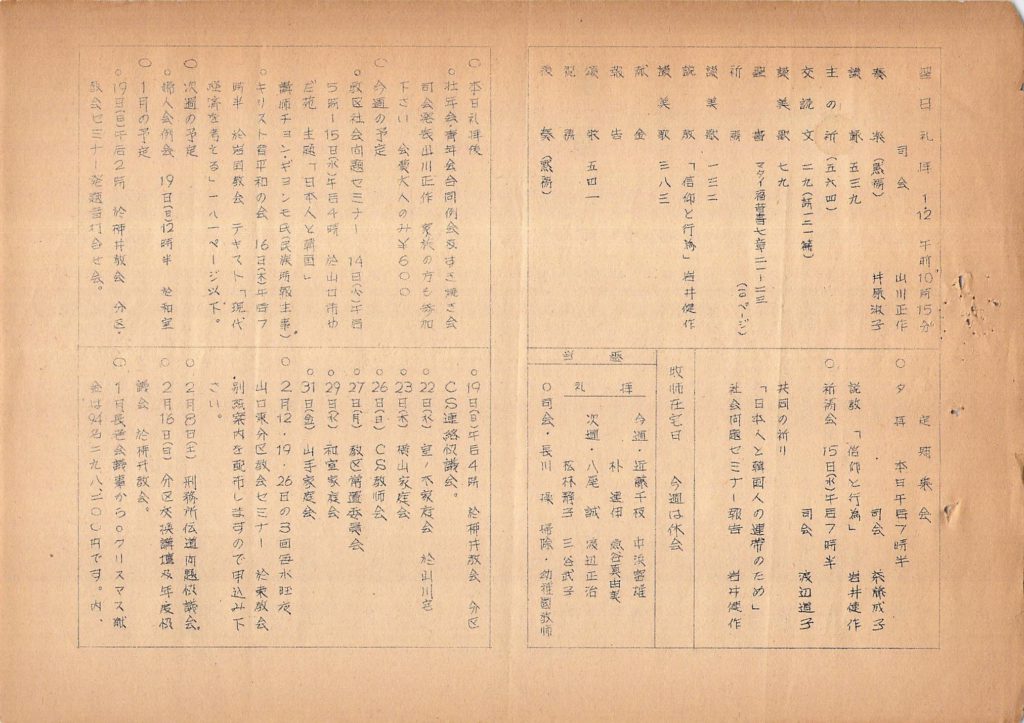 聖日礼拝 1.12 午前10時15分
司会 山川正作
奏楽(黙祷) 井原淑子
讃詠 五三九
主の祈(五六四)
交読文 二九(詩一二一篇)
讃美歌 七九
聖書 マタイ福音書七章二一-二三
祈祷
讃美歌 一三二
説教 「信仰と行為」 岩井健作
讃美歌 三八三
献金
報告
頌栄 五四一
祝祷
後奏(黙祷)
定期集会
○夕拝 本日午后7時半
司会 斎藤成子
説教 「信仰と行為」 岩井健作
○祈祷会 15日(水)午后7時半
司会 渡辺道子
共同の祈り
「日本人と韓国人の連帯のため」
社会問題ゼミナー報告 岩井健作
牧師在宅日 今週は休会
当番
礼拝
今週・近藤千枝 中浜富雄
朴蓮伊 魚谷真由美
次週・八尾誠 渡辺正治
松林静子 三谷武子
○司会・長川操 掃除・幼稚園教師
○本日礼拝後
○壮年会・青年会合同例会及すき焼き会
司会発表山川正作 家族の方も参加
下さい 会費大人のみ¥600
○今週の予定
○教区社会問題ゼミナー 14日(火)午后
5時-15日(水)午后4時 於山口南也
主題「日本人と韓国」
講師チョン・ギョンモ氏(民族時報主事)
○キリスト者平和の会 16日(木)午后7
時半 於岩国教会 テキスト「現代
経済を考える」一八一ページ以下。
○次週の予定
○婦人会例会 19日(日)12時半 於和室
○1月の予定
○19日(日)午后2時 於柳井教会 分区・
教会ゼミナー発題者打合せ会。
○19日(日)午后4時 於柳井教会 分区
CS連絡協議会。
○22日(水)室ノ木家庭会 於山川宅
○23日(木)横山家庭会
○26日(日)CS教師会
○27日(月)教区常置委員会
○29日(水)和室家庭会
○31日(金)山手家庭会
○2月12・19・26日の3回毎水曜夜
山口東分区教会ゼミナー 於東教会
別紙案内を配布しますので申込み下
さい。
○2月8日(土)刑務所伝道問題協議会。
○2月16日(日)分区交換講壇及年度協
議会 於柳井教会。
○1月長老会議事から○クリスマス献
金は94名二九八、二〇〇円です。内、